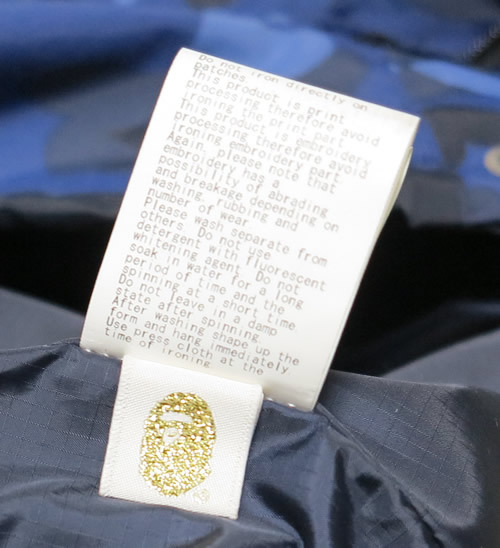 Do not iron directly on
patches
This product is print
processing therefore avoid
ironing the print part.
This product is embroidery
processing therefore avoid
ironing embroidery part
Again, please note that
embroidery has a
possibility of abrading
and breakage depending on
washing, rubbing and
number of wear.
Please wash separate from
others. Do not use
detergent with fluorescent
whitening agent. Do not
soak in water for a long
period of time and the
spinning at a short time
Do not leave in a damp
state after spinning.
After washing shape up the
form and hang immediately
Use press cloth at the
time of ironing